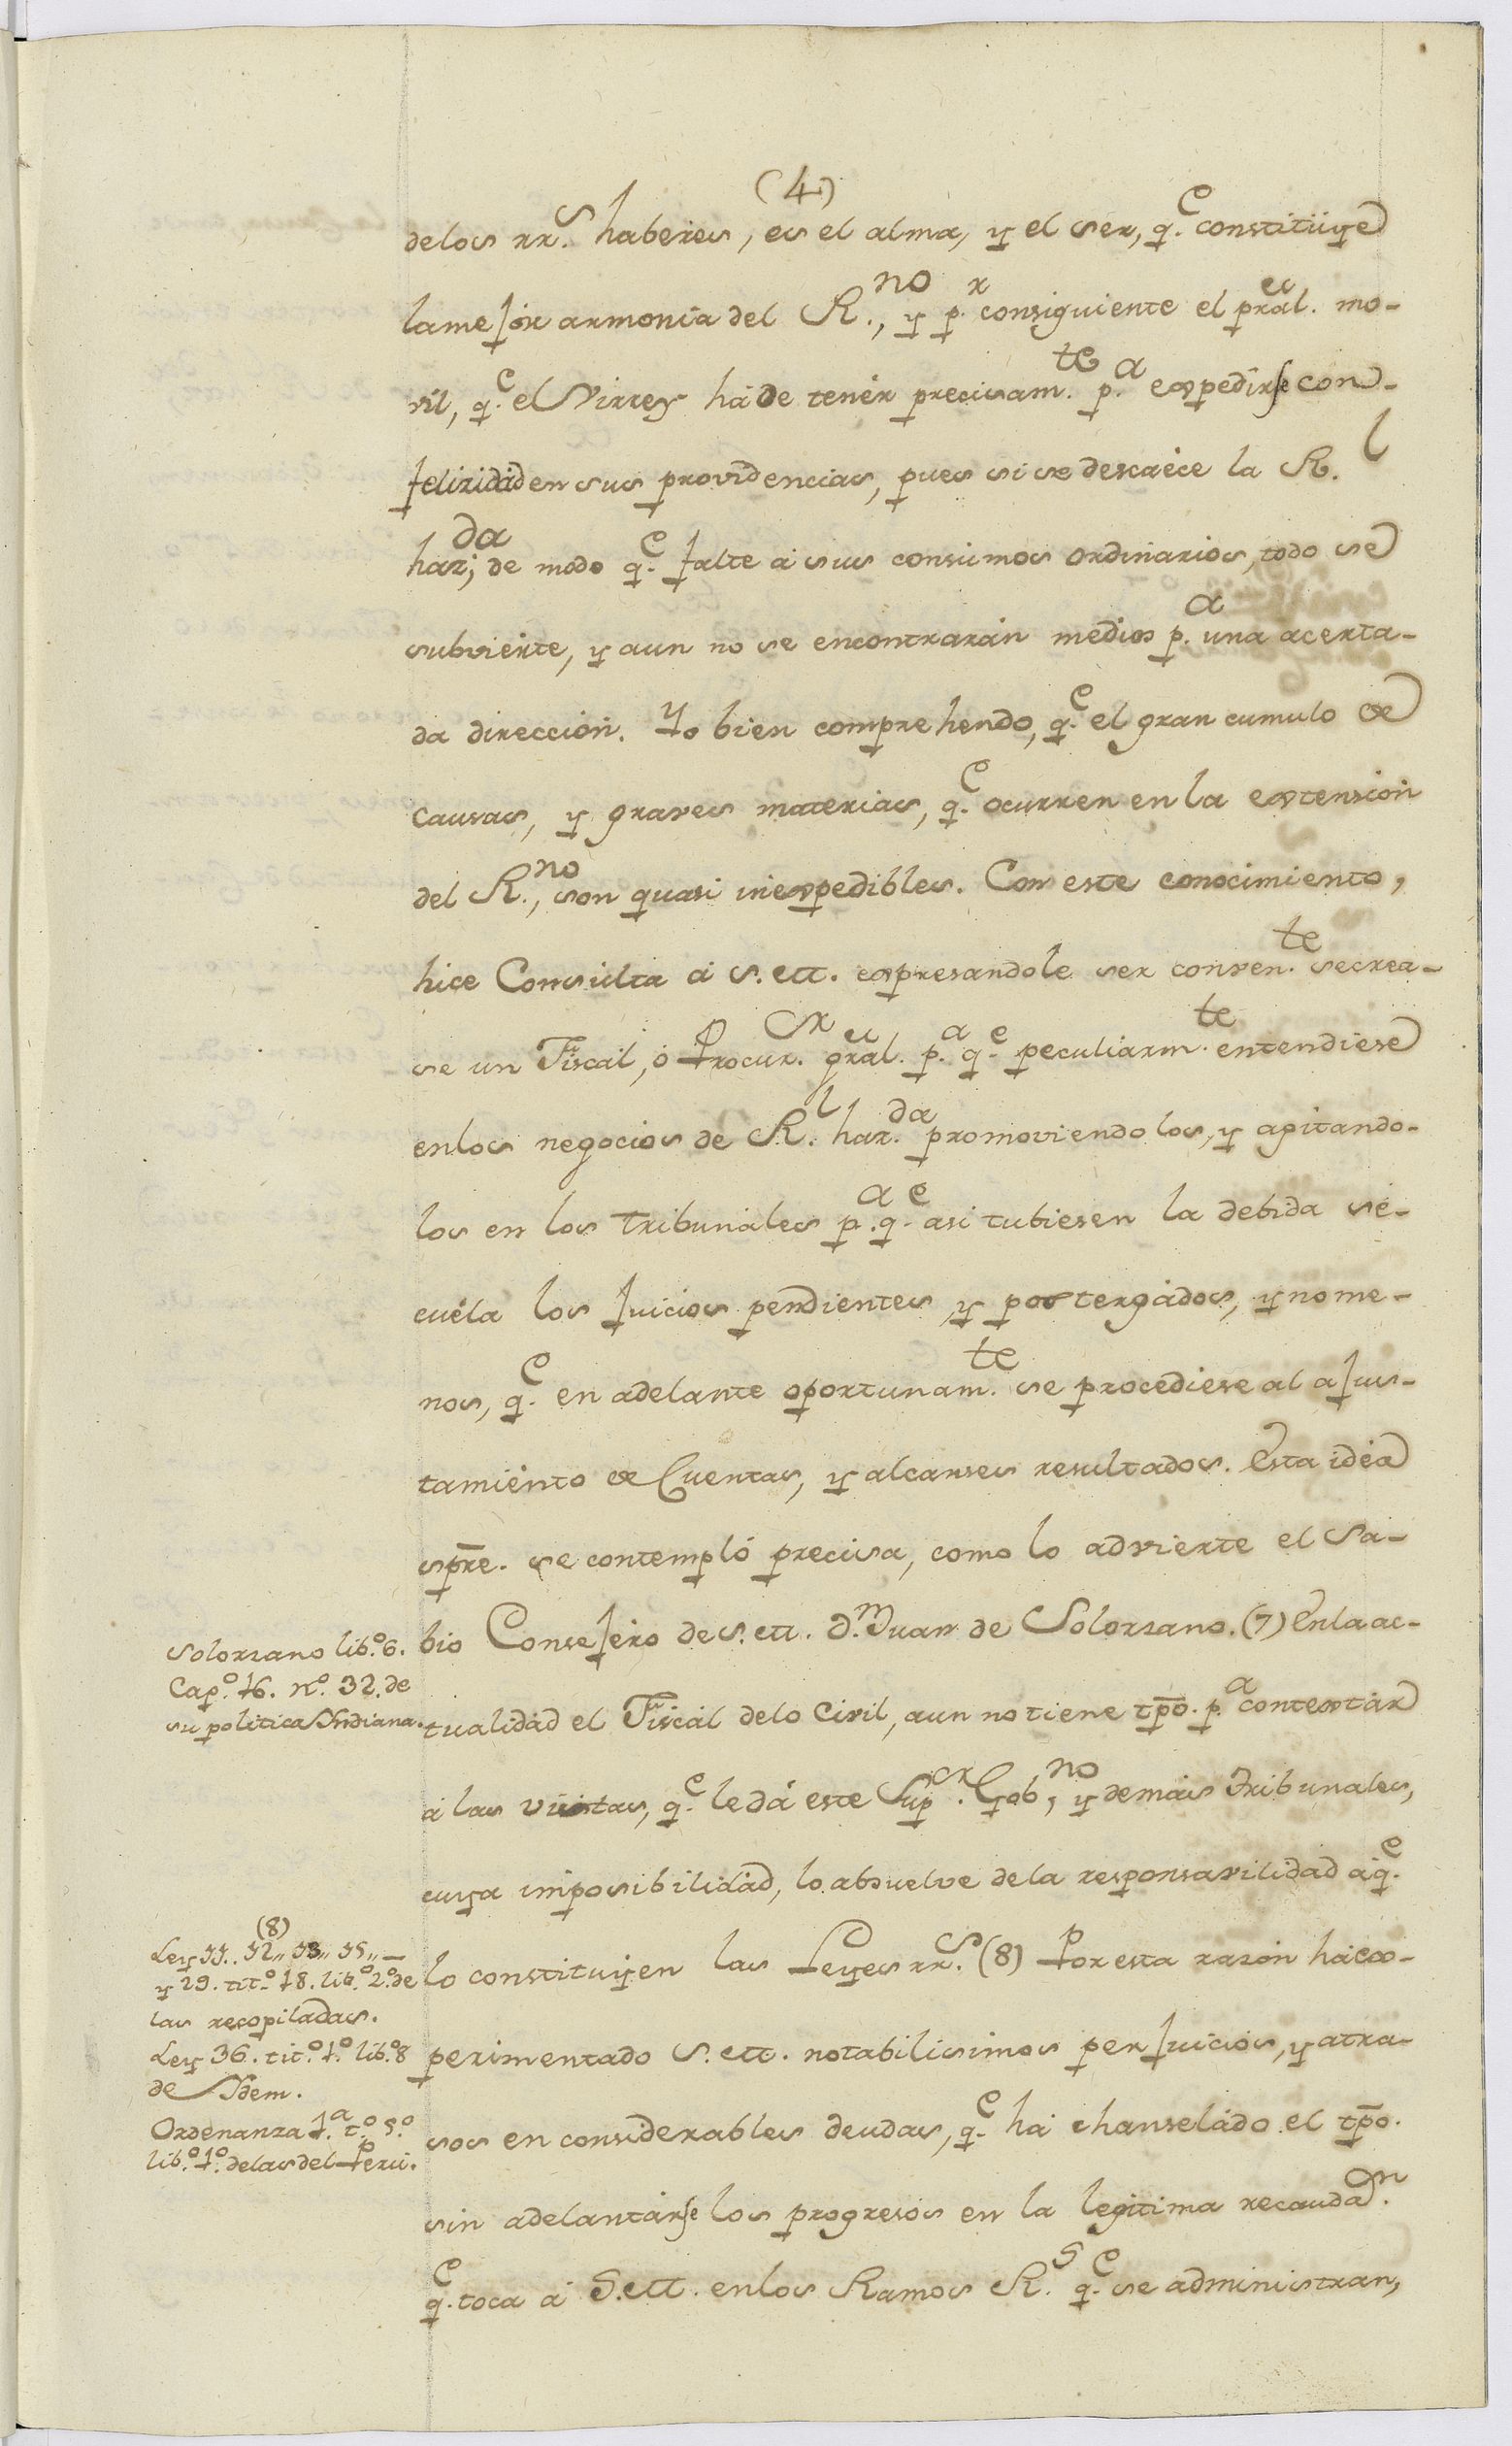 (4)
delos rr.s haberes, es el alma, y el ser, q.e constitúye
lamejór armonía del R.no, y p.r consiguiente el pral. mo-
vil, q.e el Virrey há de tenér precisam.te p.a expedirse con-
felizidád en sus providencias, pues si se descaéce la R.l
haz.da; de modo q.e falte á sus consúmos ordinarios, todo se
subvierte, y aun no se encontrarán medios p.a una acerta-
da dirección. Yo bien comprehendo, q.e el gran cumulo de
causas, y graves materias, q.e ocurren en la extensión
del R.no, son quasi inexpedibles. Con este conocimiento,
hice Consúlta á S.M. expresandole ser conven.te secrea-
se un Fiscal, ó Procur.or gral. p.a q.e peculiarm.te entendiese
enlos negocios de R.l haz.da promoviendolos, y agitando-
los en los tribunáles p.a q.e asi tubiesen la debida se-
cuéla los juicios pendientes, y postergádos, y no me-
nos, q.e en adelante oportunam.te se procediese al ajus-
tamiénto de Cuentas, y alcanses resultados. Esta idéa
spre. se contempló precisa, como lo advierte el Sa-
bio Consejero de S.M. D.n Juan de Solorsano. (7) Enla ac-
tualidád el Fiscál delo Civil, aun no tiene tpo. p.a contextár
á las vistas, q.e le dá este Sup.or Gob.no, y demás tribunales,
cuya imposibilidád, lo absuelve dela responsavilidad aq.e
lo constituyen las Leyes rr.s (8) Por esta razón há ex-
perimentado S.M. notabilisimos perjuicios, y atra-
sos en considerables deudas, q.e há chanseládo el tpo.
sin adelantárse los progresos en la legitima recaudaon.
q.e toca á S.M. enlos Ramos R.s q.e se administran,
Solorsano lib.o 6.
Cap.o 16. n.o 32. de
su politica Yndiana.
(8)
Ley 11.. 12,, 13,, 15,,—
y 29. tit.o 18. lib.o 2.o de
las recopiladas.
Ley 36. tit.o 1.o lib.o 8
de Ydem.
Ordenanza 1.a t.o 5.o
lib.o 1.o delas del Perú.